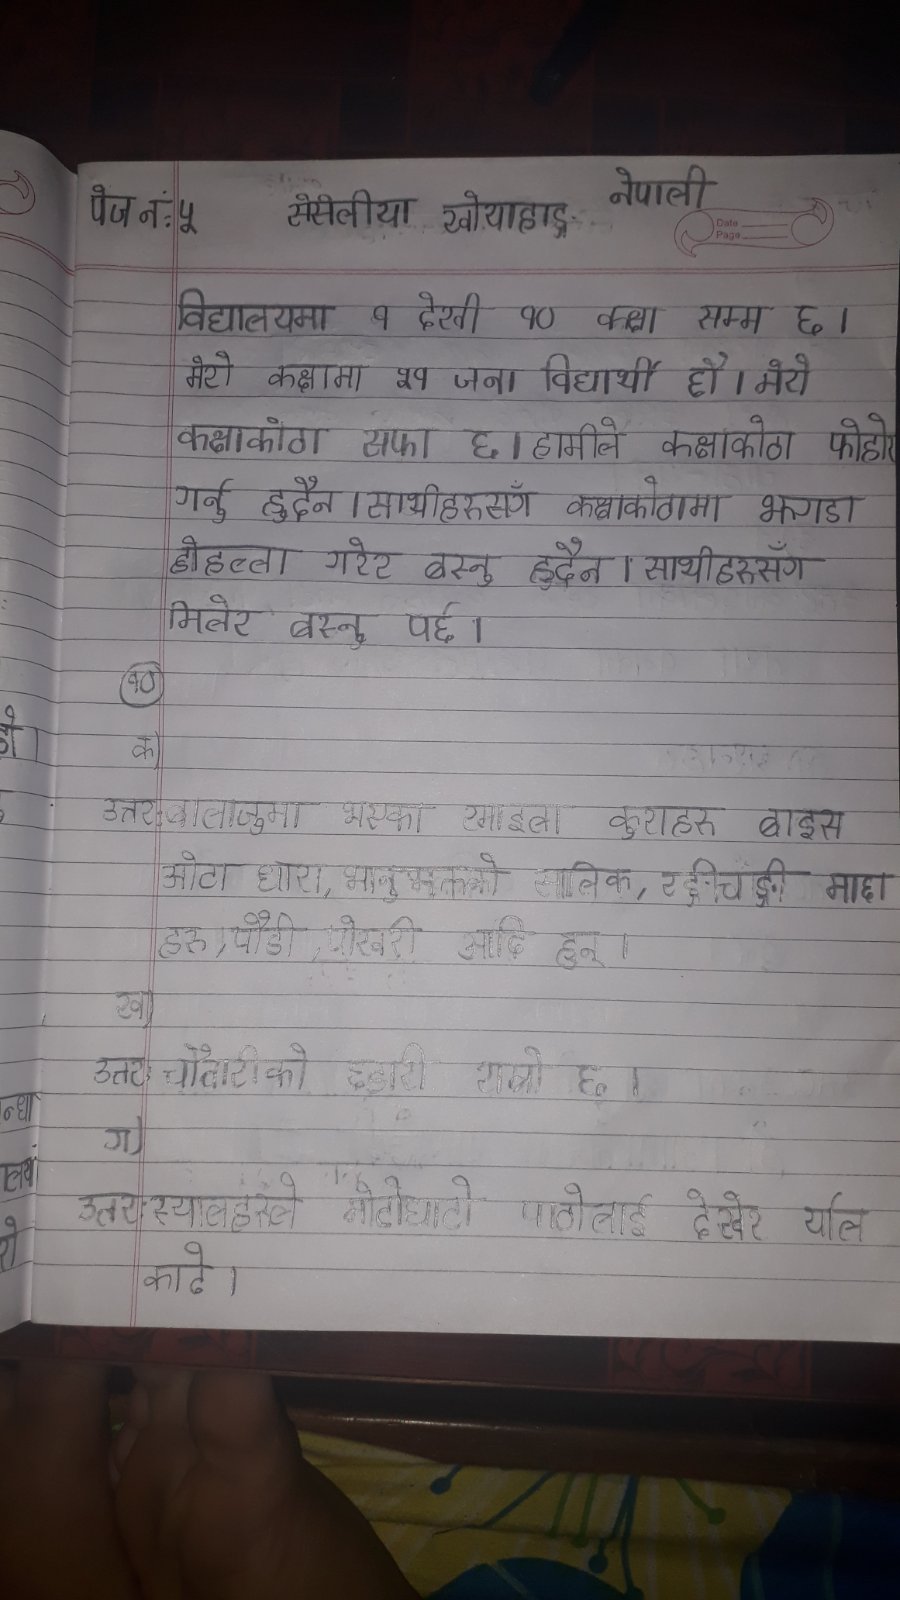 पेज नं: ५ सेसेलीया खोयाहाङ्ग नेपाली
Date
Page
विद्यालयमा १ देखी १० कक्षा सम्म छ ।
मेरो कक्षामा २१ जना विद्यार्थी छौ । मेरो
कक्षाकोठा सफा छ । हामीले कक्षाकोठा फोहोर
गर्नु हुदैन । साथीहरुसँग कक्षाकोठामा झगडा
होहल्ला गरेर बस्नु हुदैन । साथीहरुसँग
मिलेर बस्नु पर्छ ।
१०
क)
उत्तर: बालाजुमा भएका रमाइला कुराहरु बाइस
ओटा धारा, भानुभक्तको सालिक, रङ्गीचङ्गी माछा
हरु, पौडी, पोखरी आदि हुन् ।
ख)
उत्तर: चौतारीको राम्रो छ ।
ग)
उत्तर: स्यालहरुले मोटोघाटो पाठोलाई देखेर र्याल
काढे ।